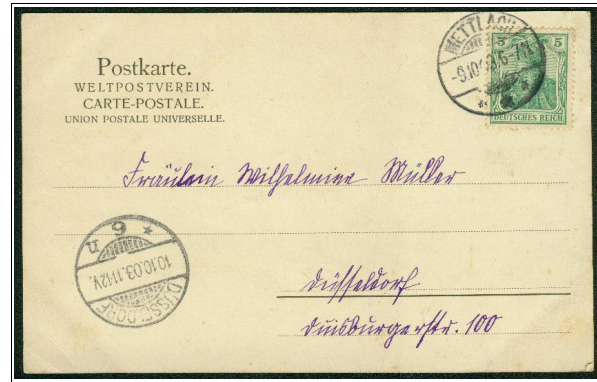 Postkarte.
WELTPOSTVEREIN.
CARTE-POSTALE.
UNION POSTALE UNIVERSELLE.
METTLACH
-9.10.03.6-7N.
5 5
DEUTSCHES REICH
Fräulein Wilhelmine Müller
Düsseldorf
Duisburgerstr. 100
DÜSSELDORF
10.10.03.11-12V.